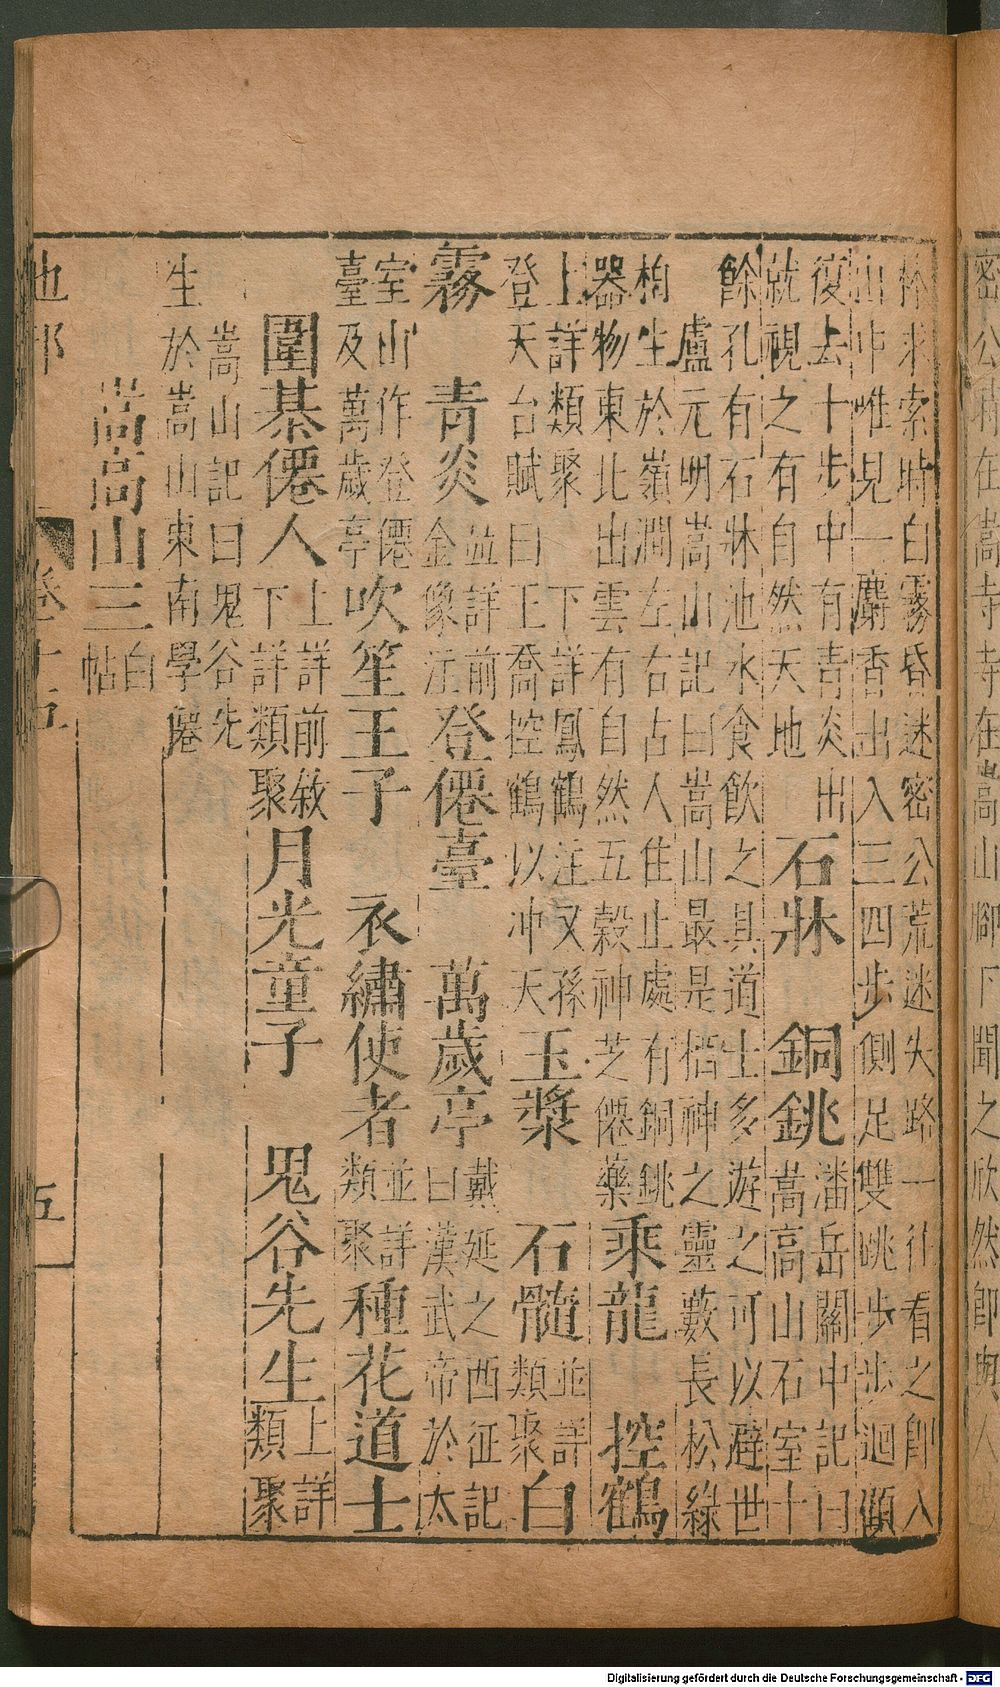 密公特在嵩寺寺在嵩山腳下聞之欣然即與人
林求索時白霧昏迷密公荒迷失路一往看之即入
山中唯見一麝香出入三四步側足雙跳步步迴傾
復去十步中有青炎出
就視之有自然天地
石牀　銅銚
潘岳關中記曰
嵩高山石室十
餘孔有石牀池水食飲之具道士多遊之可以避世
盧元明嵩山記曰嵩山最是栖神之靈藪長松綠
柏生於嶺澗左右占人住止處有銅銚
器物東北出雲有自然五穀神芝僊藥
乘龍　控鶴
上詳類聚　下詳鳳鶴注又孫
登天台賦曰王喬控鶴以冲天
玉漿　石髓
並詳
類聚
白
霧　青炎
並詳前
金像注
登僊臺　萬歲亭
戴延之西征記
曰漢武帝於太
室山作登僊
臺及萬歲亭
吹笙王子　衣繡使者
並詳
類聚
種花道士
圍棊僊人
上詳前敘
下詳類聚
月光童子　鬼谷先生
上詳
類聚
嵩山記曰鬼谷先
生於嵩山東南學僊
嵩高山三
白
帖
地部　卷十五　五
Digitalisierung gefördert durch die Deutsche Forschungsgemeinschaft - DFG